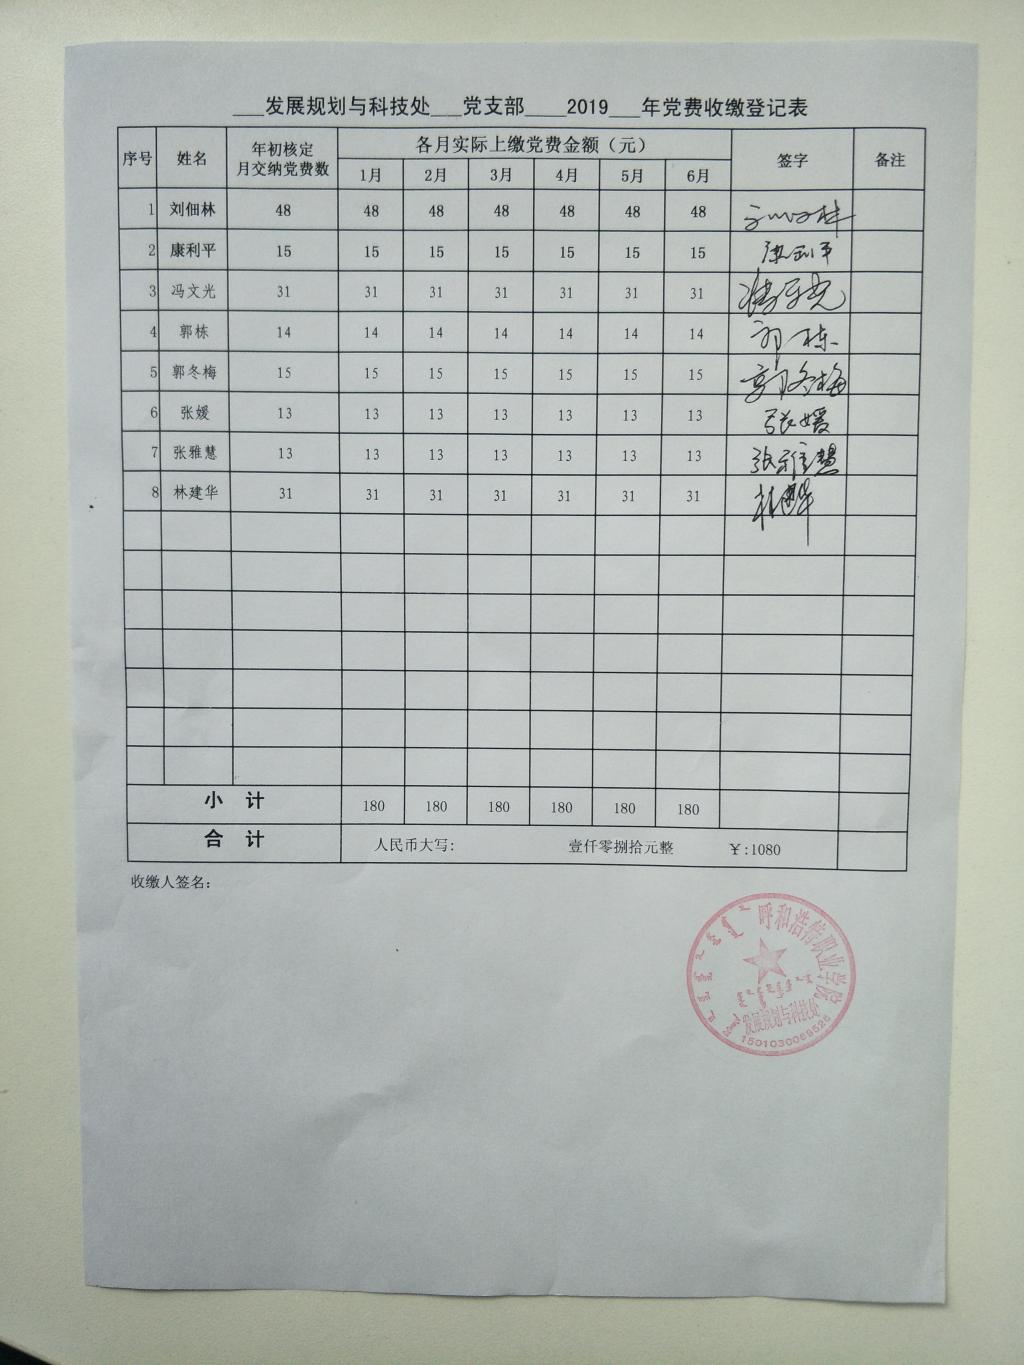 ___发展规划与科技处___党支部____2019___年党费收缴登记表
序号 姓名 年初核定月交纳党费数 各月实际上缴党费金额（元） 签字 备注
1月 2月 3月 4月 5月 6月
1 刘佃林 48 48 48 48 48 48 48
2 康利平 15 15 15 15 15 15 15 康利平
3 冯文光 31 31 31 31 31 31 31
4 郭栋 14 14 14 14 14 14 14 郭栋
5 郭冬梅 15 15 15 15 15 15 15 郭冬梅
6 张媛 13 13 13 13 13 13 13 张媛
7 张雅慧 13 13 13 13 13 13 13 张雅慧
8 林建华 31 31 31 31 31 31 31 林建华
小 计 180 180 180 180 180 180
合 计 人民币大写: 壹仟零捌拾元整 ￥:1080
收缴人签名:
呼和浩特职业学院
发展规划与科技处